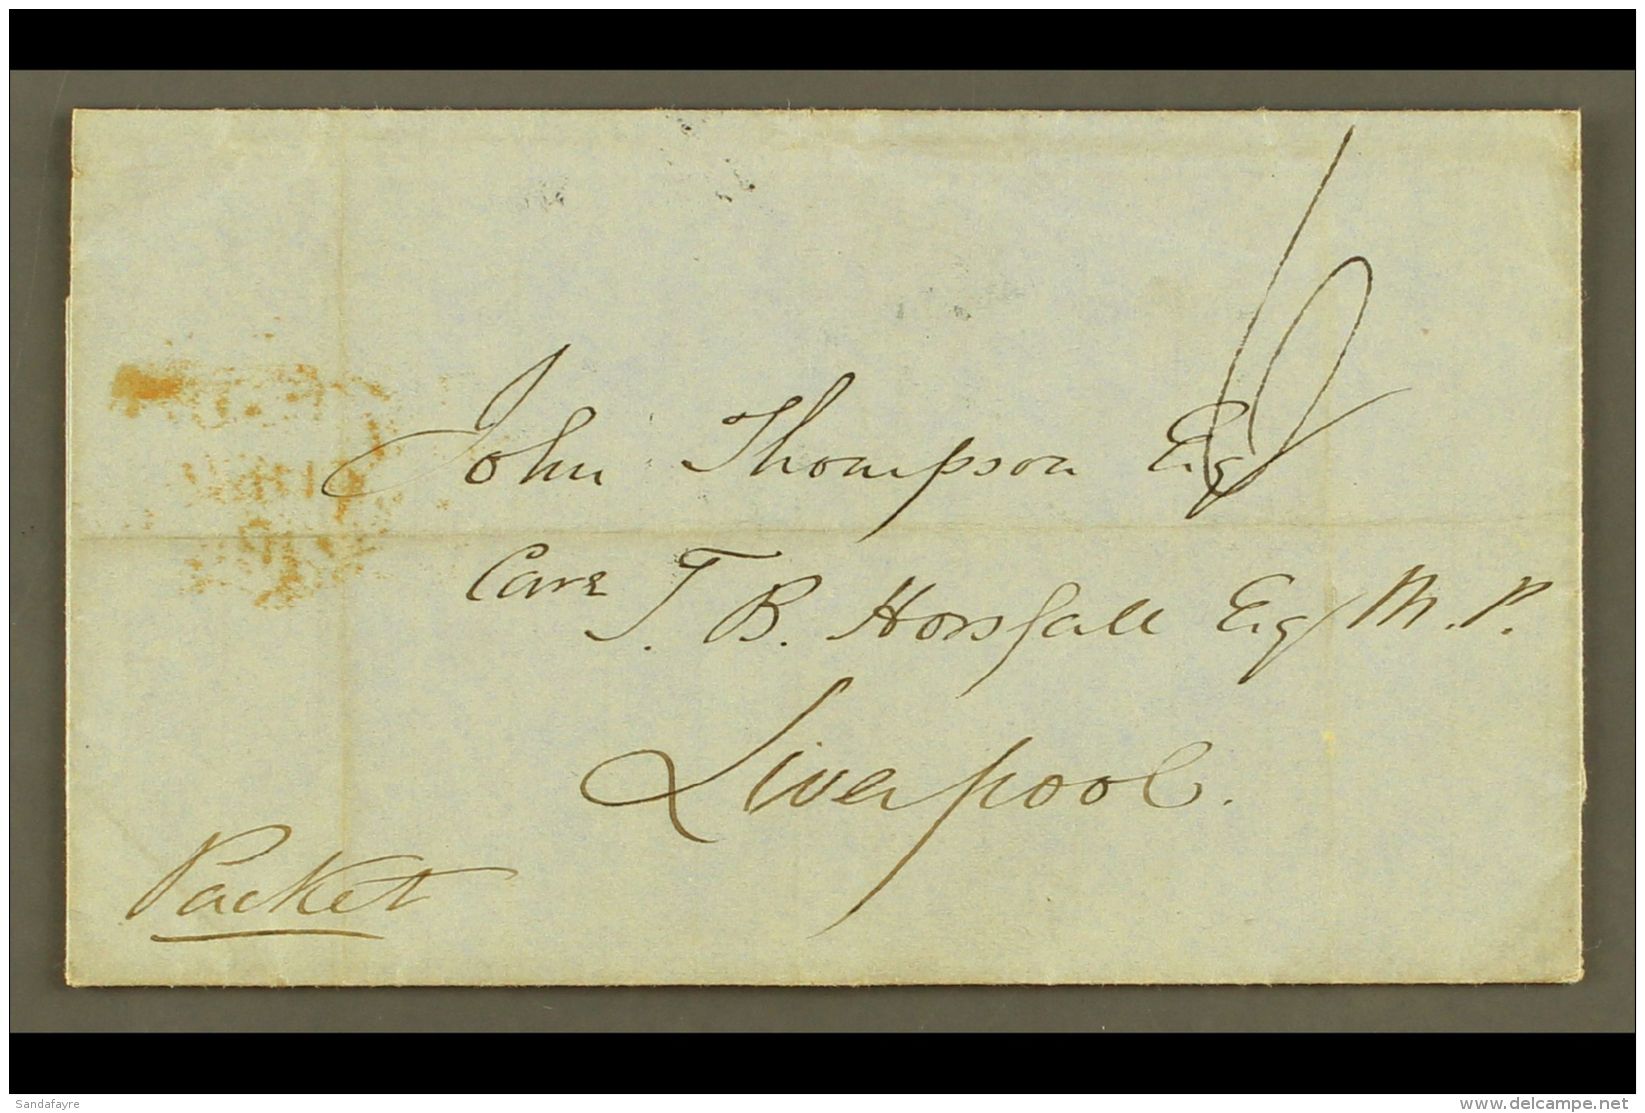 John Thompson Esq
Care
T. B. Horsfall Esq M.P.
Liverpool.
Packet
Sandafayre
www.delcampe.net